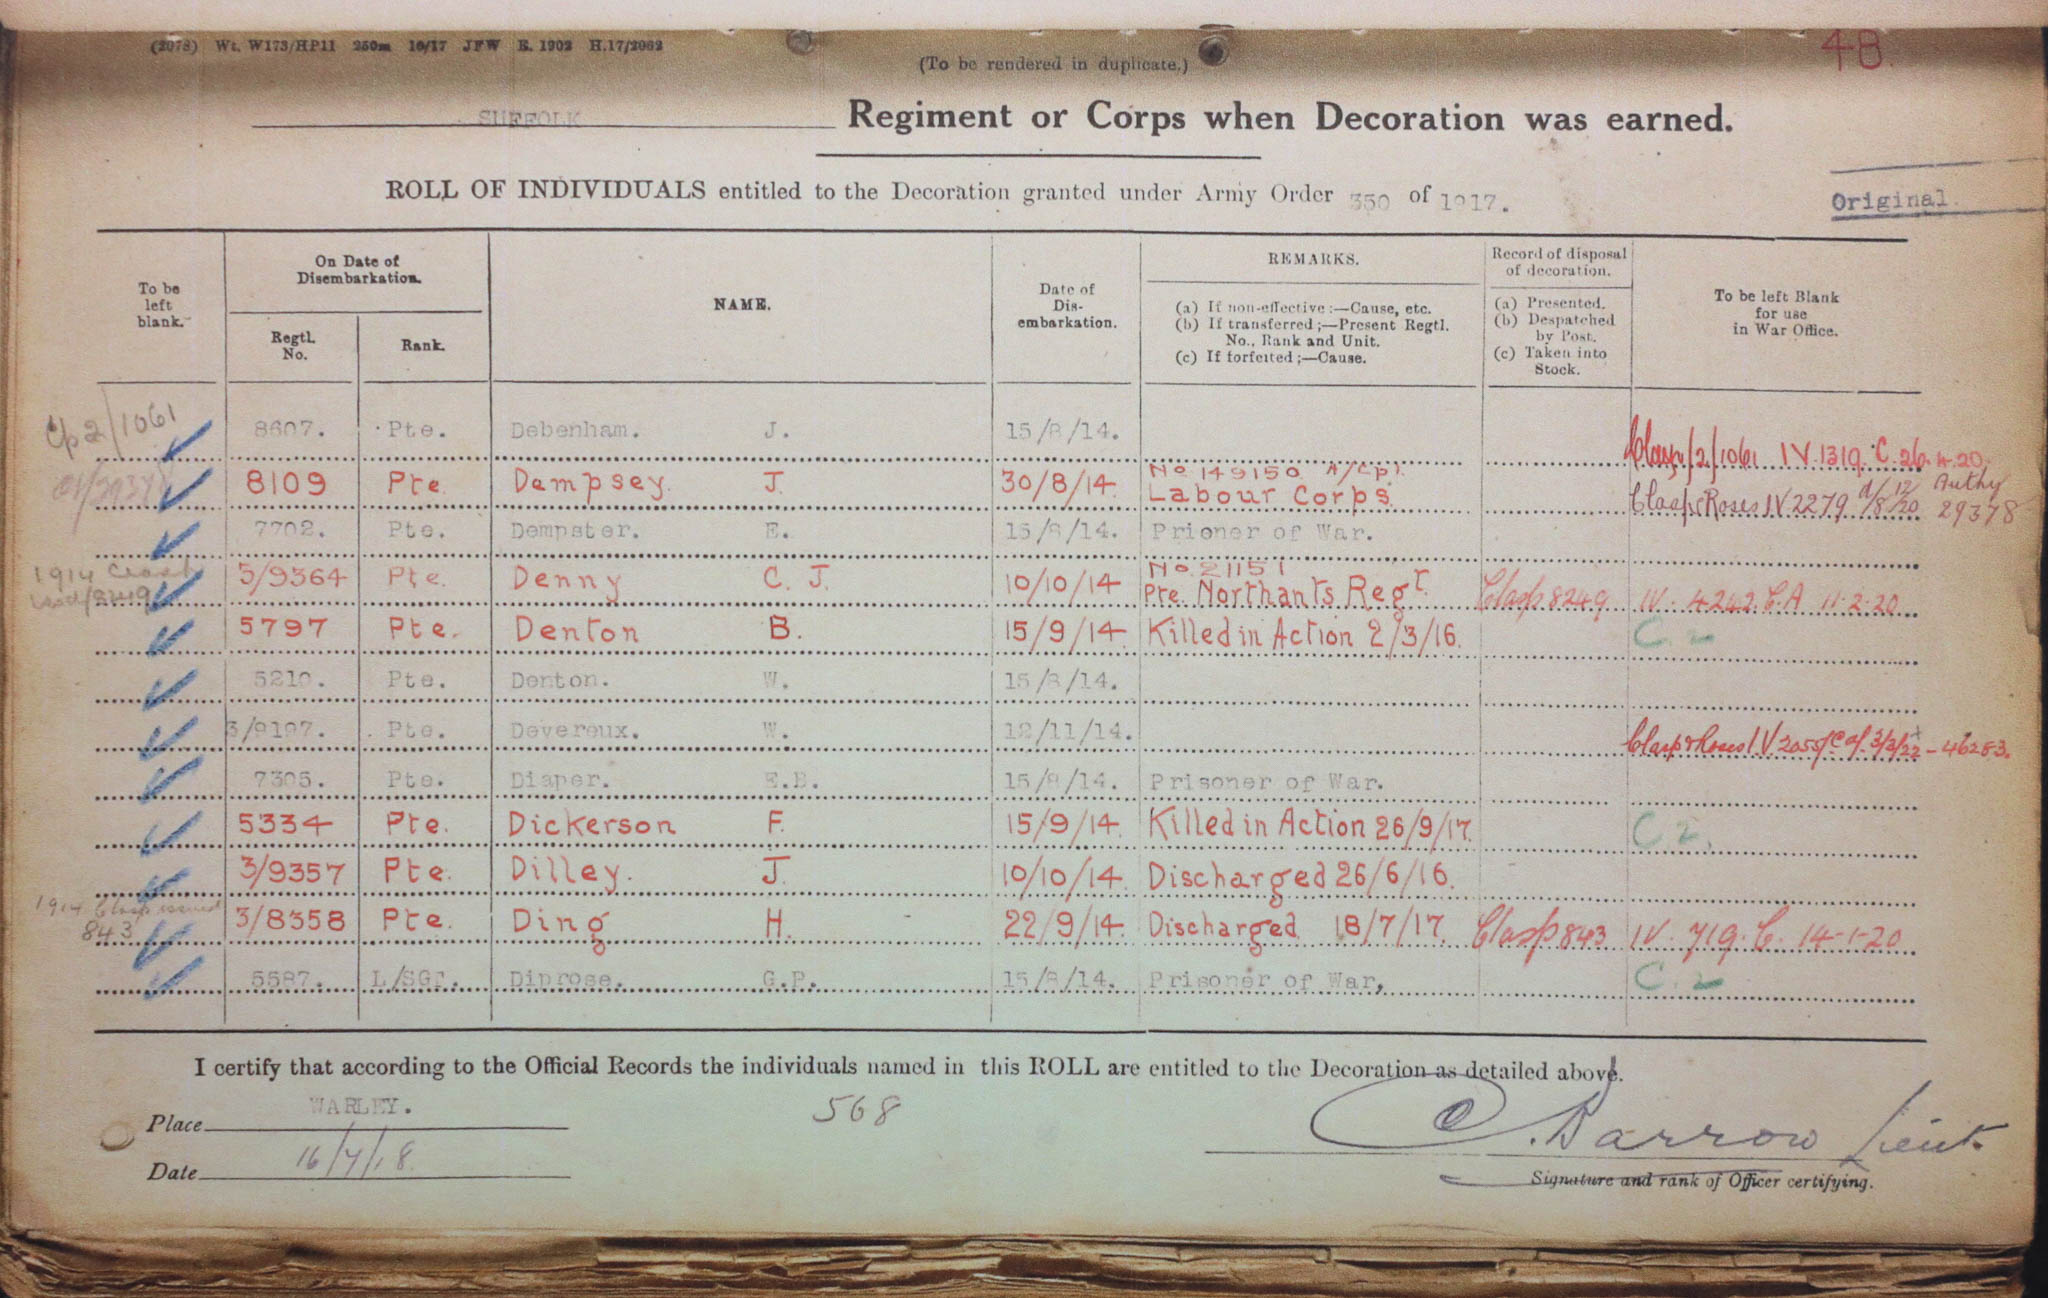 (2078) Wt. W173/HP11 250m 10/17 JFW E. 1902 H.17/2062
(To be rendered in duplicate.)
48.
SUFFOLK Regiment or Corps when Decoration was earned.
ROLL OF INDIVIDUALS entitled to the Decoration granted under Army Order 350 of 1917.
Original.
To be left blank.
On Date of Disembarkation.
Regtl. No.
Rank.
NAME.
Date of Dis-embarkation.
REMARKS.
(a) If non-effective:—Cause, etc.
(b) If transferred;—Present Regtl. No., Rank and Unit.
(c) If forfeited;—Cause.
Record of disposal of decoration.
(a) Presented.
(b) Despatched by Post.
(c) Taken into Stock.
To be left Blank for use in War Office.
2/1061 8607. Pte. Debenham. J. 15/8/14. Clasp/2/1061 IV.1319. C. 26.4.20.
8109 Pte. Dempsey. J. 30/8/14. No 149150 A/Cpl. Labour Corps. Clasp & Roses IV 2279 d/8/12/20 Authy 29378
7702. Pte. Dempster. E. 15/8/14. Prioner of War.
1914 3/9364 Pte. Denny C. J. 10/10/14 No. 21151 Pte. Northants Regt. Clasp 8249 IV. 4242. C.A 11.2.20
5797 Pte. Denton B. 15/9/14 Killed in Action 2/3/16. C.2
5210. Pte. Denton. W. 15/8/14.
3/9197. Pte. Devereux. W. 12/11/14. Clasp & Roses IV 2055/C of 3/3/22 - 46283.
7305. Pte. Diaper. E.B. 15/8/14. Prisoner of War.
5334 Pte. Dickerson F. 15/9/14. Killed in Action 26/9/17. C 2.
3/9357 Pte. Dilley. J. 10/10/14. Discharged 26/6/16.
1914 Clasp issued 843 3/8358 Pte. Ding H. 22/9/14. Discharged 18/7/17. Clasp 843 IV. 719. C. 14-1-20
5587. L/SGT. Diprose. G.P. 15/8/14. Prisoner of War, C.2
I certify that according to the Official Records the individuals named in this ROLL are entitled to the Decoration as detailed above.
Place WARLEY.
568
C. Barrow Lieut
Date 16/7/18.
Signature and rank of Officer certifying.